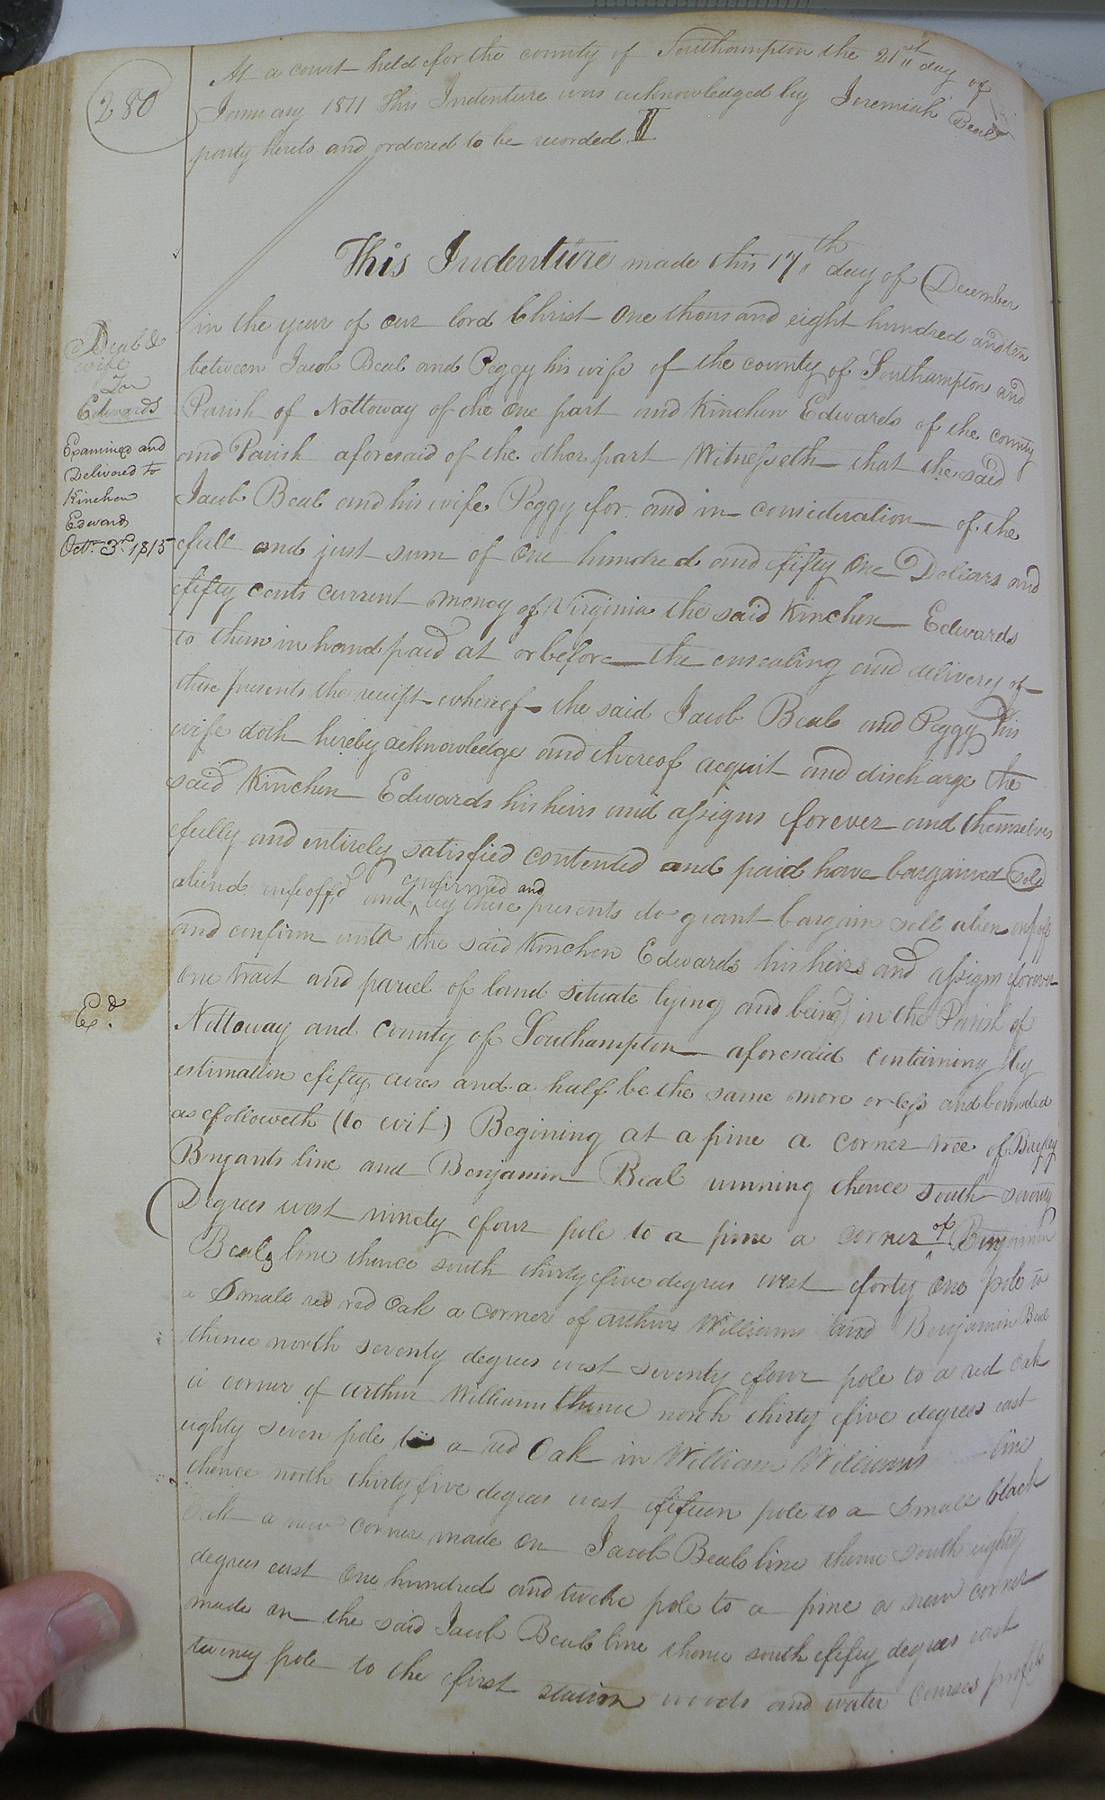 280
At a court held for the county of Southampton the 21st day of
January 1811 This Indenture was acknowledged by Jeremiah Beal
party hereto and ordered to be recorded
This Indenture made this 17th day of December
in the year of our lord Christ One thousand eight hundred and ten
between Jacob Beal and Peggy his wife of the county of Southampton and
Parish of Nottoway of the One part and Kinchen Edwards of the county
and Parish aforesaid of the other part Witnesseth that the said
Jacob Beal and his wife Peggy for and in consideration of the
full and just sum of One hundred and fifty One Dollars and
fifty cents current money of Virginia the said Kinchen Edwards
to them in hand paid at or before the ensealing and delivery of
these presents the receipt whereof the said Jacob Beal and Peggy his
wife doth hereby acknowledge and thereof acquit and discharge the
said Kinchen Edwards his heirs and assigns forever and themselves
fully and entirely satisfied contented and paid have bargained sold
aliend infeoffd and confirmed and by these presents do grant bargain sell alien infeoff
and confirm unto the said Kinchen Edwards his heirs and assigns forever
One tract and parcel of land situate lying and being in the Parish of
Nottoway and County of Southampton aforesaid containing by
estimation fifty acres and a half be the same more or less and bounded
as followeth (to wit) Begining at a pine a corner tree of
Bryants line and Benjamin Beal running thence south seventy
Degrees west ninety four pole to a pine a corner of Benjamin
Beals line thence south thirty five degrees west forty one pole to
a Small red red Oak a corner of arthur Williams and Benjamin Beal
thence north seventy degrees west seventy four pole to a red Oak
a corner of arthur Williams thence north thirty five degrees east
eighty seven pole to a red Oak in William Williams line
thence north thirty five degrees west fifteen pole to a Small black
Oak a new corner made on Jacob Beals line thence south eighty
degrees east One hundred and twelve pole to a pine a new corner
made on the said Jacob Beals line thence south fifty degrees east
twenty pole to the first station woods and water courses profits
Beal &
wife
To
Edwards
Examined and
Delivered to
Kinchen
Edwards
Octr. 3rd. 1815
Ed.